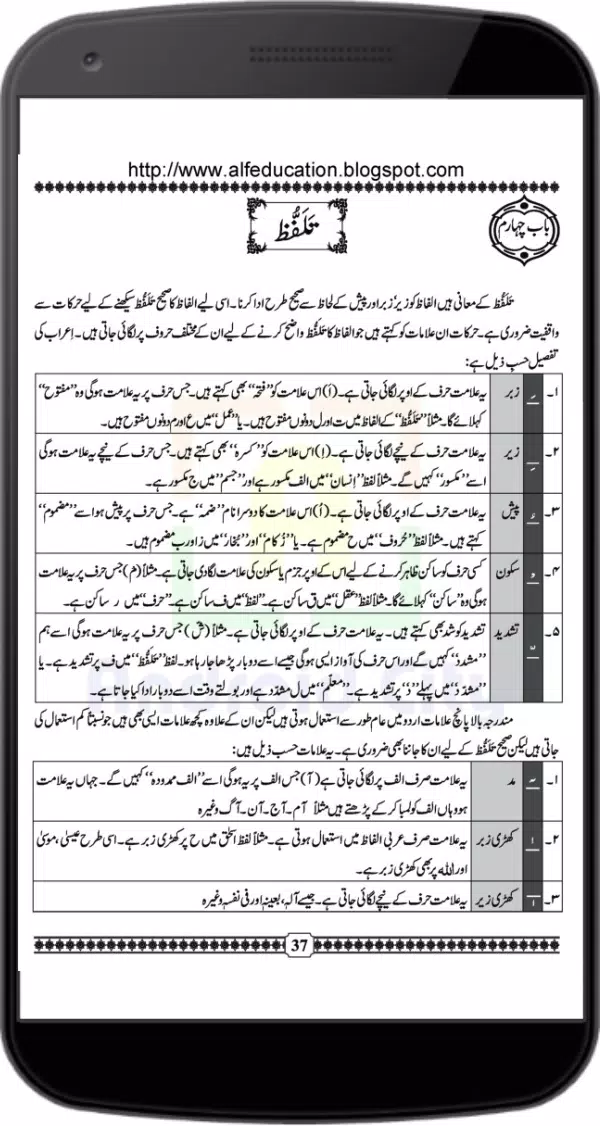 http://www.alfeducation.blogspot.com
باب چہارم
تَلَفُّظ
تَلَفُّظ کے معانی ہیں الفاظ کو زیر، زبر اور پیش کے لحاظ سے صحیح طرح ادا کرنا۔ اسی لیے الفاظ کا صحیح تَلَفُّظ سیکھنے کے لیے حرکات سے
واقفیت ضروری ہے۔ حرکات ان علامات کو کہتے ہیں جو الفاظ کا تَلَفُّظ واضح کرنے کے لیے ان کے مختلف حروف پر لگائی جاتی ہیں۔ اِعراب کی
تفصیل حسبِ ذیل ہے:
۱۔ زبر یہ علامت حرف کے اوپر لگائی جاتی ہے۔ (اَ) اس علامت کو "فتحہ" بھی کہتے ہیں۔ جس حرف پر یہ علامت ہو گی وہ "مفتوح"
کہلائے گا۔ مثلاً "تَلَفُّظ" کے الفاظ میں ت اور ل دونوں مفتوح ہیں۔ یا "عَمَل" میں ع اور م دونوں مفتوح ہیں۔
۲۔ زیر یہ علامت حرف کے نیچے لگائی جاتی ہے۔ (اِ) اس علامت کو "کسرہ" بھی کہتے ہیں۔ جس حرف کے نیچے یہ علامت ہو گی
اسے "مکسور" کہیں گے۔ مثلاً لفظ "اِنسان" میں الف مکسور ہے اور "جِسم" میں ج مکسور ہے۔
۳۔ پیش یہ علامت حرف کے اوپر لگائی جاتی ہے۔ (اُ) اس علامت کا دوسرا نام "ضمہ" ہے۔ جس حرف پر پیش ہو اسے "مضموم"
کہتے ہیں۔ مثلاً لفظ "حُروف" میں ح مضموم ہے۔ یا "زُکام" اور "بُخار" میں ز اور ب مضموم ہیں۔
۴۔ سکون کسی حرف کو ساکن ظاہر کرنے کے لیے اس کے اوپر جزم یا سکون کی علامت لگا دی جاتی ہے۔ مثلاً (مْ) جس حرف پر یہ علامت
ہو گی وہ "ساکن" کہلائے گا۔ مثلاً لفظ "عقْل" میں ق ساکن ہے۔ "لفظ" میں ف ساکن ہے۔ "حرف" میں ر ساکن ہے۔
۵۔ تشدید تشدید کو شد بھی کہتے ہیں۔ یہ علامت حرف کے اوپر لگائی جاتی ہے۔ مثلاً (شّ) جس حرف پر یہ علامت ہو گی اسے ہم
"مشدد" کہیں گے اور اس حرف کی آواز ایسی ہو گی جیسے اسے دو بار پڑھا جا رہا ہو۔ لفظ "تَلَفُّظ" میں ف پر تشدید ہے۔ یا
"مشدّد" میں پہلے "د" پر تشدید ہے۔ "معلّم" میں ل مشدّد ہے اور بولتے وقت اسے دو بار ادا کیا جاتا ہے۔
مندرجہ بالا پانچ علامات اردو میں عام طور سے استعمال ہوتی ہیں لیکن ان کے علاوہ کچھ علامات ایسی بھی ہیں جو نسبتاً کم استعمال کی
جاتی ہیں لیکن صحیح تَلَفُّظ کے لیے ان کا جاننا بھی ضروری ہے۔ یہ علامات حسبِ ذیل ہیں:
۱۔ مد یہ علامت صرف الف پر لگائی جاتی ہے (آ) جس الف پر یہ ہو گی اسے "الف ممدودہ" کہیں گے۔ جہاں یہ علامت
ہو وہاں الف کو لمبا کر کے پڑھتے ہیں مثلاً آم۔ آج۔ آن۔ آگ وغیرہ
۲۔ کھڑی زبر یہ علامت صرف عربی الفاظ میں استعمال ہوتی ہے۔ مثلاً لفظ اسحٰق میں ح پر کھڑی زبر ہے۔ اسی طرح عیسیٰ، موسیٰ
اور اللہ پر بھی کھڑی زبر ہے۔
۳۔ کھڑی زیر یہ علامت حرف کے نیچے لگائی جاتی ہے۔ جیسے آلہٖ، بعینہٖ اور فی نفسہٖ وغیرہ
37